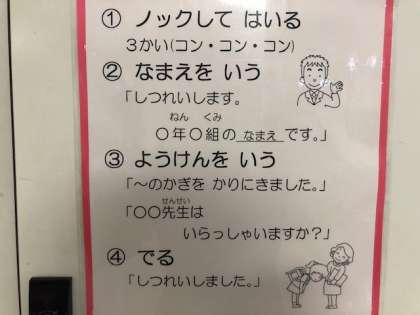 ① ノックして はいる
3かい(コン・コン・コン)
② なまえを いう
「しつれいします。
ねん くみ
〇年〇組の なまえ です。」
③ ようけんを いう
「～のかぎを かりにきました。」
せんせい
「〇〇先生は
いらっしゃいますか?」
④ でる
「しつれいしました。」